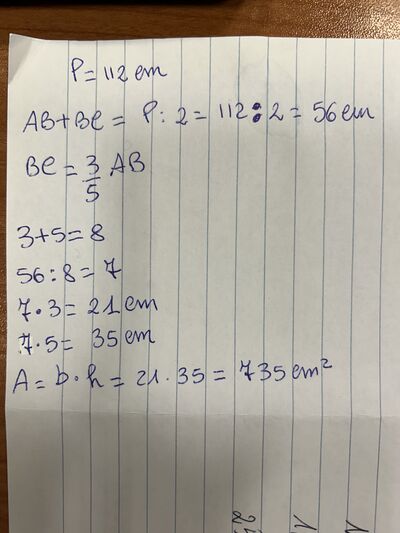 P = 112 cm
AB+BC = P : 2 = 112 : 2 = 56 cm
BC = 3/5 AB
3+5=8
56:8=7
7·3=21 cm
7·5= 35 cm
A = b·h = 21·35 = 735 cm²